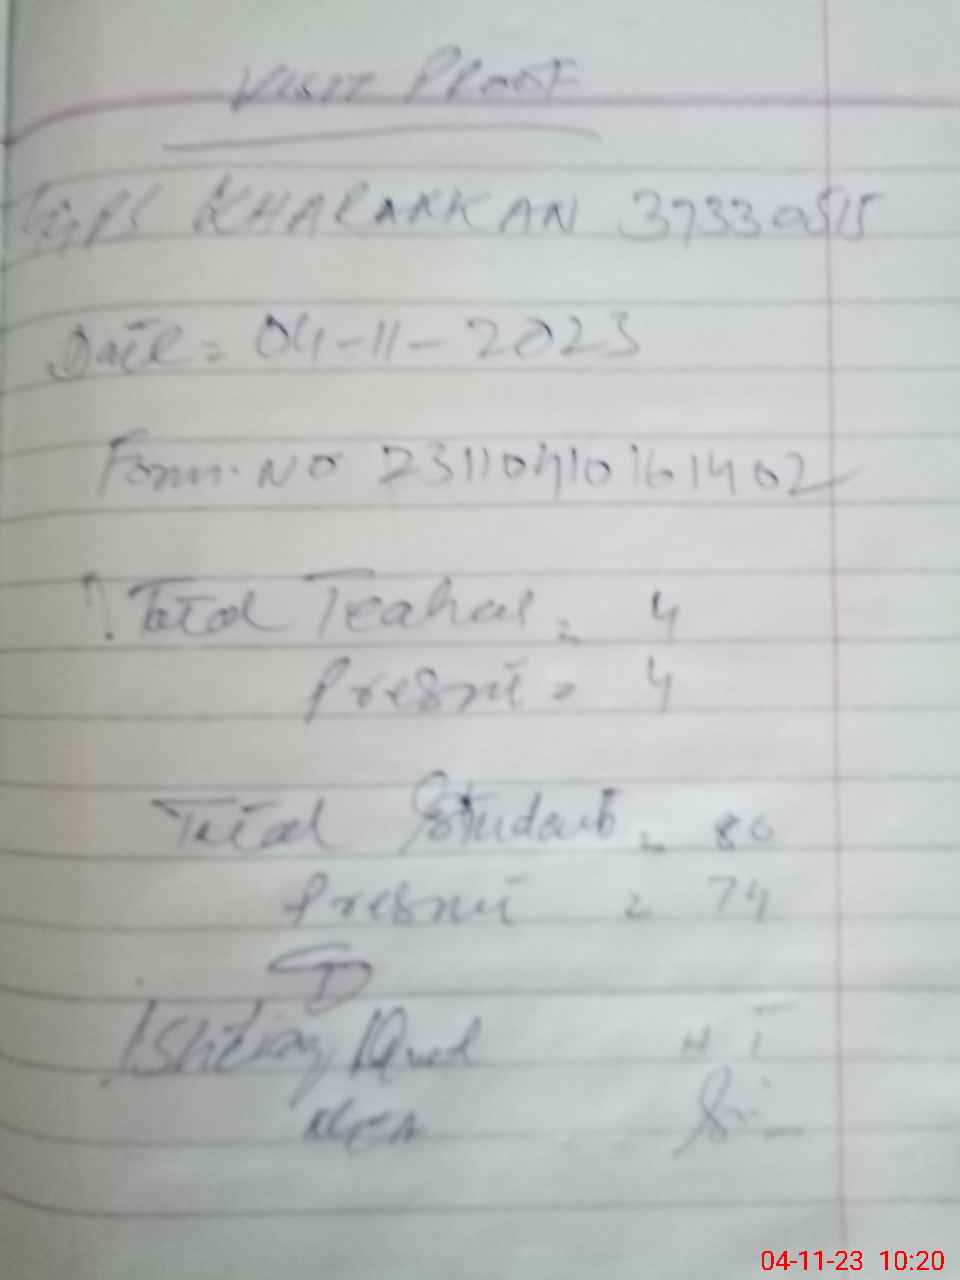 VISIT PROOF
GGPS KHARAKKAN 37330515
Date = 04-11-2023
Form.No 23110410161402
Total Teahers = 4
Present = 4
Total Student = 80
Present = 74
Ishtiaq Ahmed H T
MEA
04-11-23 10:20